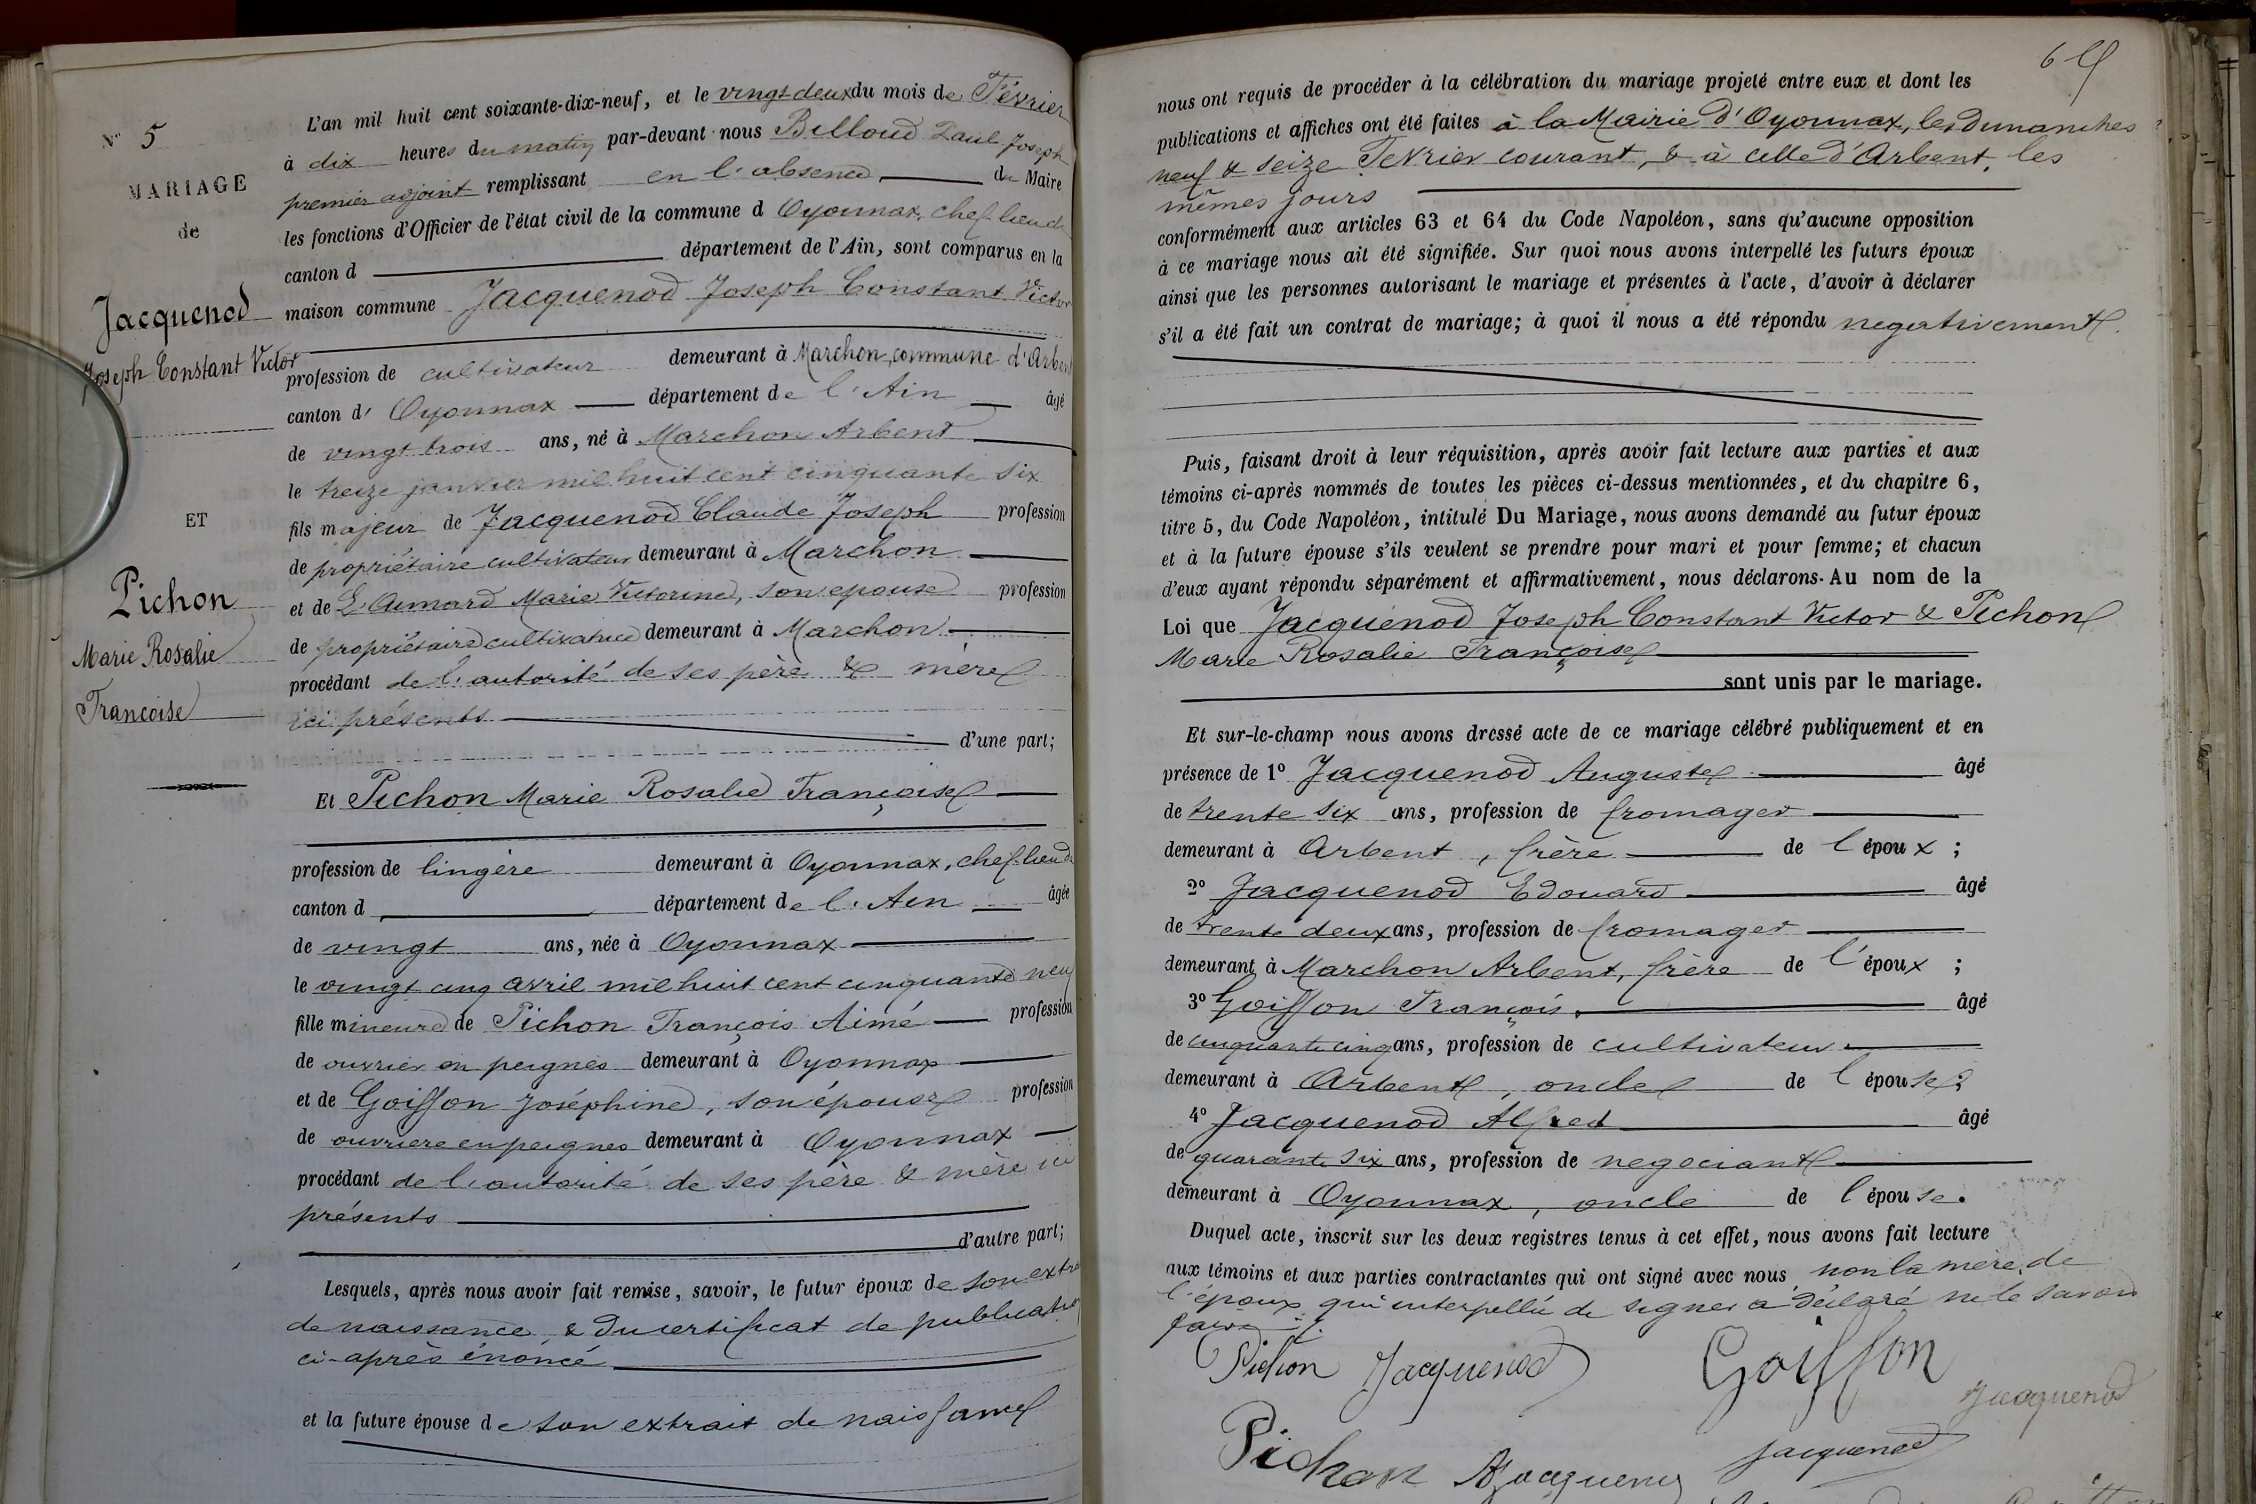 N° 5
MARIAGE
de
Jacquenod
Joseph Constant Victor
ET
Pichon
Marie Rosalie
Françoise
L'an mil huit cent soixante-dix-neuf, et le vingt deux du mois de Février
à dix heures du matin par-devant nous Billoud Paul Joseph
premier adjoint remplissant en l'absence du Maire
les fonctions d'Officier de l'état civil de la commune d Oyonnax, chef lieu de
canton d département de l'Ain, sont comparus en la
maison commune Jacquenod Joseph Constant Victor
profession de cultivateur demeurant à Marchon, commune d'Arbent
canton d' Oyonnax département de l'Ain âgé
de vingt trois ans, né à Marchon Arbent
le treize janvier mil huit cent cinquante six
fils majeur de Jacquenod Claude Joseph profession
de propriétaire cultivateur demeurant à Marchon
et de Marie Victorine, son épouse profession
de propriétaire cultivatrice demeurant à Marchon
procédant de l'autorité de ses père & mère
ici présents
d'une part;
Et Pichon Marie Rosalie Françoise
profession de lingère demeurant à Oyonnax, chef lieu de
canton d département de l'Ain âgée
de vingt ans, née à Oyonnax
le vingt cinq avril mil huit cent cinquante neuf
fille mineure de Pichon François Aimé profession
de ouvrier en peignes demeurant à Oyonnax
et de Goiffon Joséphine, son épouse profession
de ouvrière en peignes demeurant à Oyonnax
procédant de l'autorité de ses père & mère ici
présents
d'autre part;
Lesquels, après nous avoir fait remise, savoir, le futur époux de son extra
de naissance & du certificat de publication
ci-après énoncé
et la future épouse de son extrait de naissance
nous ont requis de procéder à la célébration du mariage projeté entre eux et dont les
publications et affiches ont été faites à la Mairie d'Oyonnax, les dimanches
neuf & seize Février courant, & à celle d'Arbent, les
mêmes jours
conformément aux articles 63 et 64 du Code Napoléon, sans qu'aucune opposition
à ce mariage nous ait été signifiée. Sur quoi nous avons interpellé les futurs époux
ainsi que les personnes autorisant le mariage et présentes à l'acte, d'avoir à déclarer
s'il a été fait un contrat de mariage; à quoi il nous a été répondu negativement.
Puis, faisant droit à leur réquisition, après avoir fait lecture aux parties et aux
témoins ci-après nommés de toutes les pièces ci-dessus mentionnées, et du chapitre 6,
titre 5, du Code Napoléon, intitulé Du Mariage, nous avons demandé au futur époux
et à la future épouse s'ils veulent se prendre pour mari et pour femme; et chacun
d'eux ayant répondu séparément et affirmativement, nous déclarons. Au nom de la
Loi que Jacquenod Joseph Constant Victor & Pichon
Marie Rosalie Françoise
sont unis par le mariage.
Et sur-le-champ nous avons dressé acte de ce mariage célébré publiquement et en
présence de 1° Jacquenod Auguste âgé
de trente six ans, profession de fromager
demeurant à Arbent, frère de l'époux ;
2° Jacquenod Edouard âgé
de trente deux ans, profession de fromager
demeurant à Marchon Arbent, frère de l'époux ;
3° Goiffon François, âgé
de cinquante cinq ans, profession de cultivateur
demeurant à Arbent, oncle de l'épouse;
4° Jacquenod Alfred âgé
de quarante six ans, profession de negociant
demeurant à Oyonnax, oncle de l'épouse.
Duquel acte, inscrit sur les deux registres tenus à cet effet, nous avons fait lecture
aux témoins et aux parties contractantes qui ont signé avec nous non la mère de
l'époux qui interpellée de signer a déclaré ne le savoir
faire
Pichon Jacquenod Goiffon
Jacquenod
Pichon Jacquenod